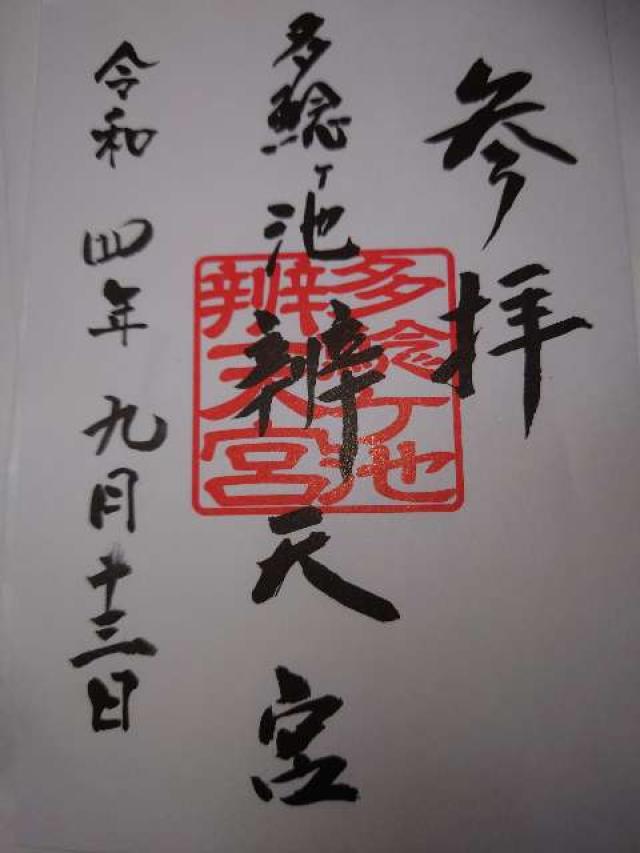 参拝
多鯰ヶ池辨天宮
多鯰ヶ池
辨天宮
令和四年九月十三日